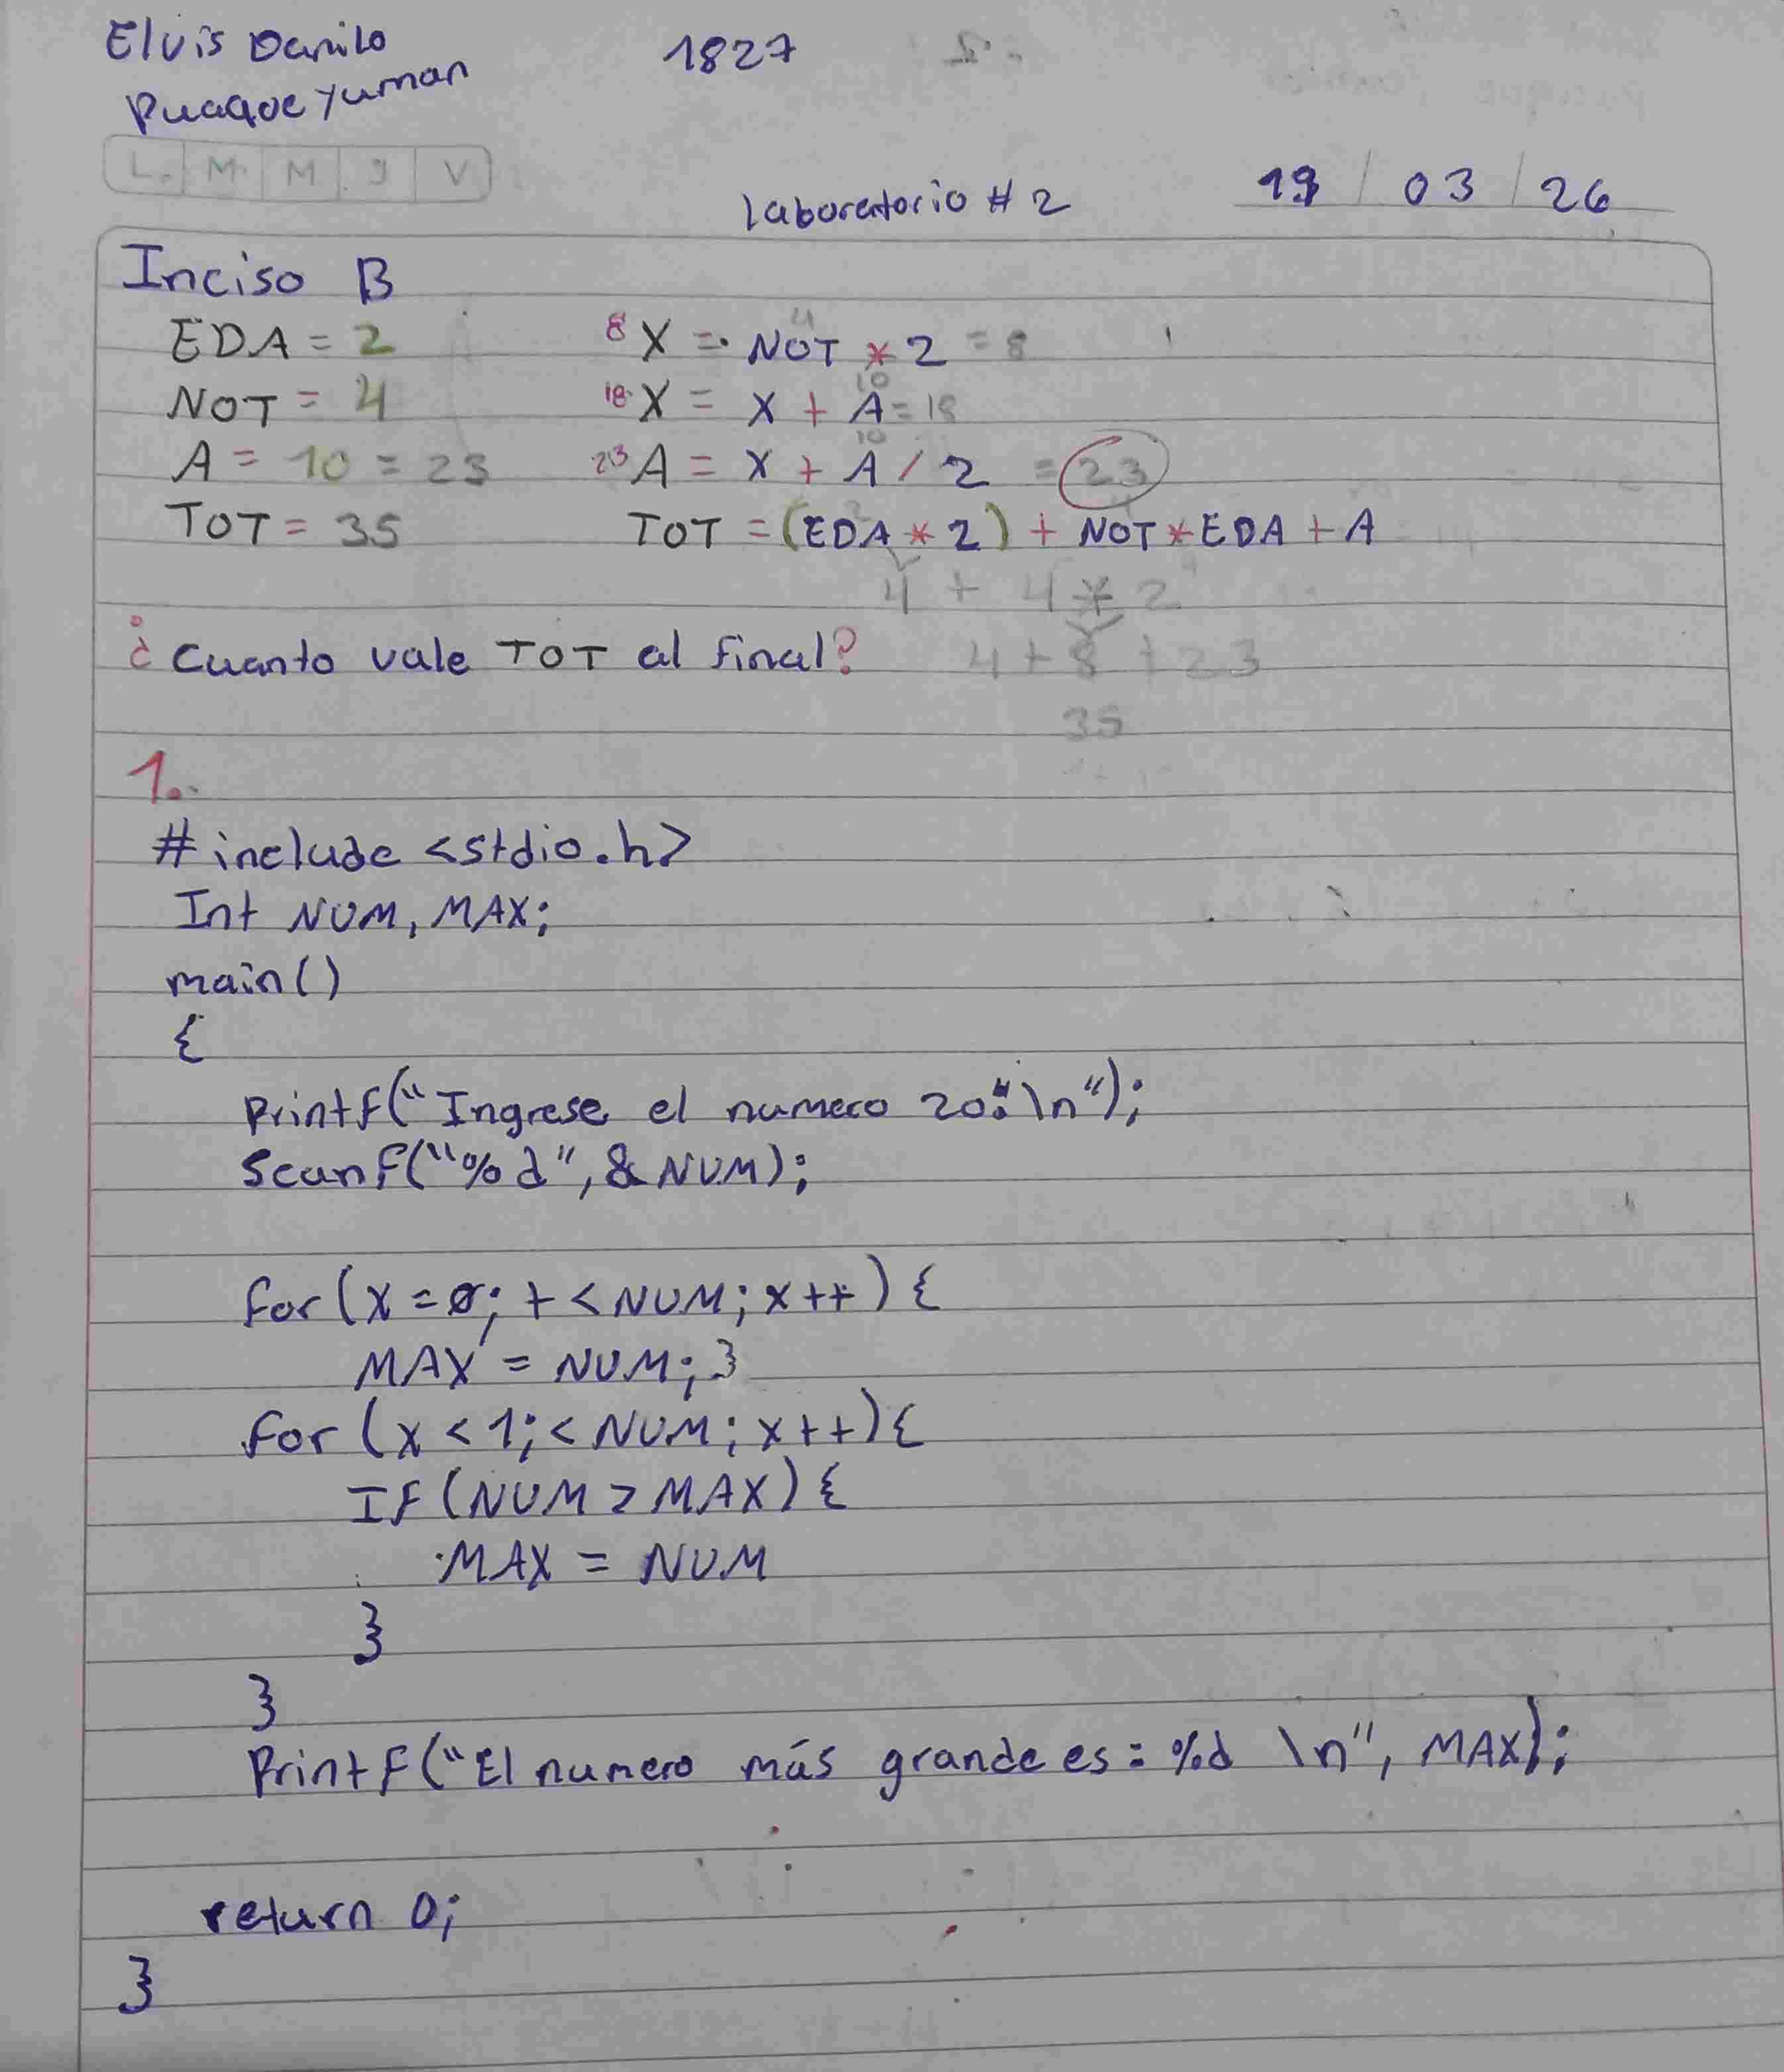 Elvis Danilo 1827
Puaque Yuman
L. M. M. J V
Laboratorio # 2 19 / 03 / 26
Inciso B
EDA = 2 8 X = NOT * 2 = 8
4
NOT = 4 18 X = X + A = 18
10
A = 10 = 23 23 A = X + A / 2 = 23
10
TOT = 35 TOT = (EDA * 2) + NOT * EDA + A
4 + 4 * 2
¿Cuanto vale TOT al final? 4 + 8 + 23
35
1.
#include <stdio.h>
Int NUM, MAX;
main()
{
Printf("Ingrese el numero 20: \n");
Scanf("%d", &NUM);
for (X = 0; + < NUM; x++) {
MAX = NUM; }
for (x < 1; < NUM; x++) {
IF (NUM > MAX) {
MAX = NUM
}
}
Printf("El numero más grande es: %d \n", MAX);
return 0;
}